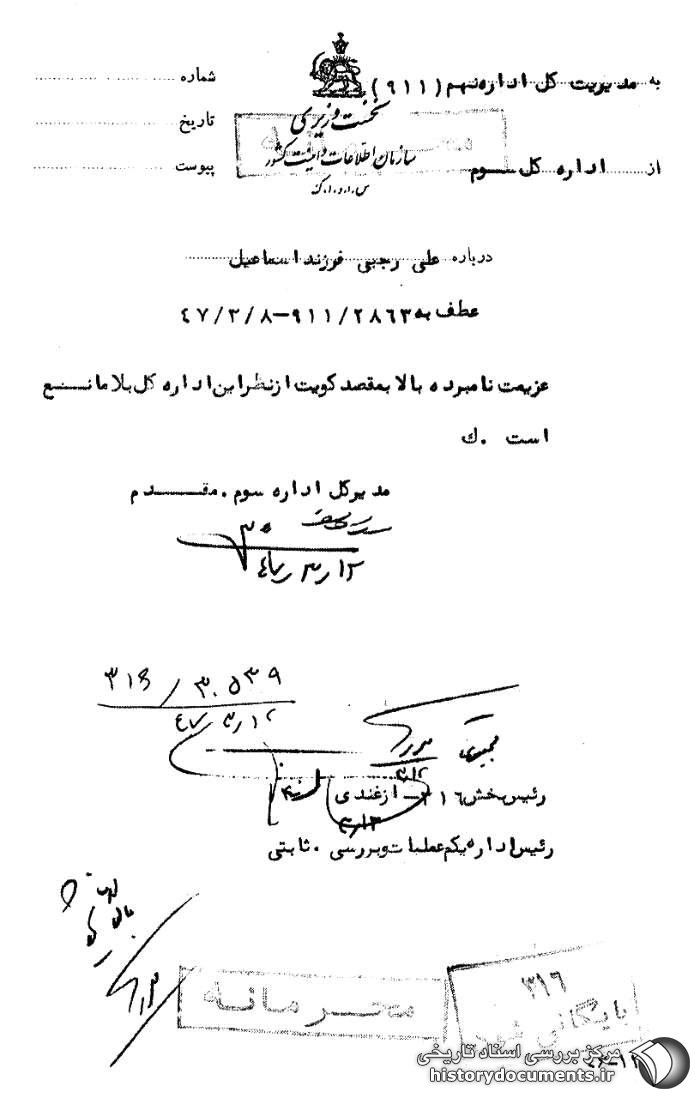 به مدیریت کل اداره نهم (۹۱۱)
شماره
نخست وزیری
تاریخ
محرمانه
سازمان اطلاعات و امنیت کشور
از اداره کل سوم
پیوست
س.ا.و.ا.ک
درباره علی رجبی فرزند اسماعیل
عطف به ۹۱۱/۲۸۶۳-۴۷/۳/۸
عزیمت نامبرده بالا بمقصد کویت از نظر این اداره کل بلا مانع
است . ك
مدیرکل اداره سوم . مقدم
۴۷/۳/۱۲
۳۱۶/۳۰۵۳۹
۴۷/۳/۱۲
رئیس بخش ۳۱۶- ازغندی
۳/۱۲
رئیس اداره یکم عملیات و بررسی . ثابتی
محرمانه
۳۱۶
بایگانی شود
مرکز بررسی اسناد تاریخی
historydocuments.ir